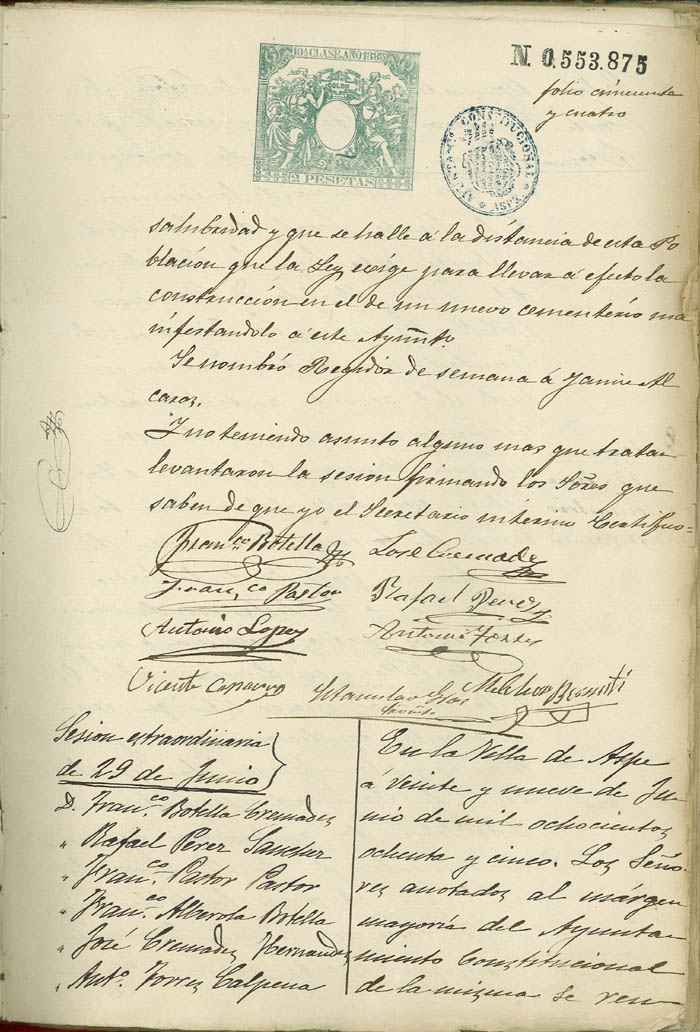 10ª CLASE. AÑO 1885
2 PESETAS
N. 0.553.875
folio cincuenta
y cuatro
AYUNTAMTO CONSTITUCIONAL ASPE
salubridad y que se halle á la distancia de esta Po
blación que la Ley exige para llevar á efecto la
construcción en el de un nuevo cementerio ma
nifestandolo á este Ayuntº.
Se nombró Regidor de semana á Jaime Al
caraz.
Y no teniendo asunto alguno mas que tratar
levantaron la sesion firmando los Sores que
saben de que yo el Secretario interino Certifico=
Franco Botella
José Cremades
Franco Pastor
Rafael Perez
Antonio Lopez
Antonio Torres
Vicente
Melchor
Estanislao
Sesion extraordinaria
de 29 de Junio
D. Franco. Botella Cremades
" Rafael Perez Sanchez
" Franco. Pastor Pastor
" Franco. Alberola Botella
" José Cremades Hernandez
" Anto. Torres Calpena
En la Villa de Aspe
á veinte y nueve de Ju
nio de mil ochocientos
ochenta y cinco. Los Seño
res anotados al márgen
mayoría del Ayunta
miento Constitucional
de la misma se reu